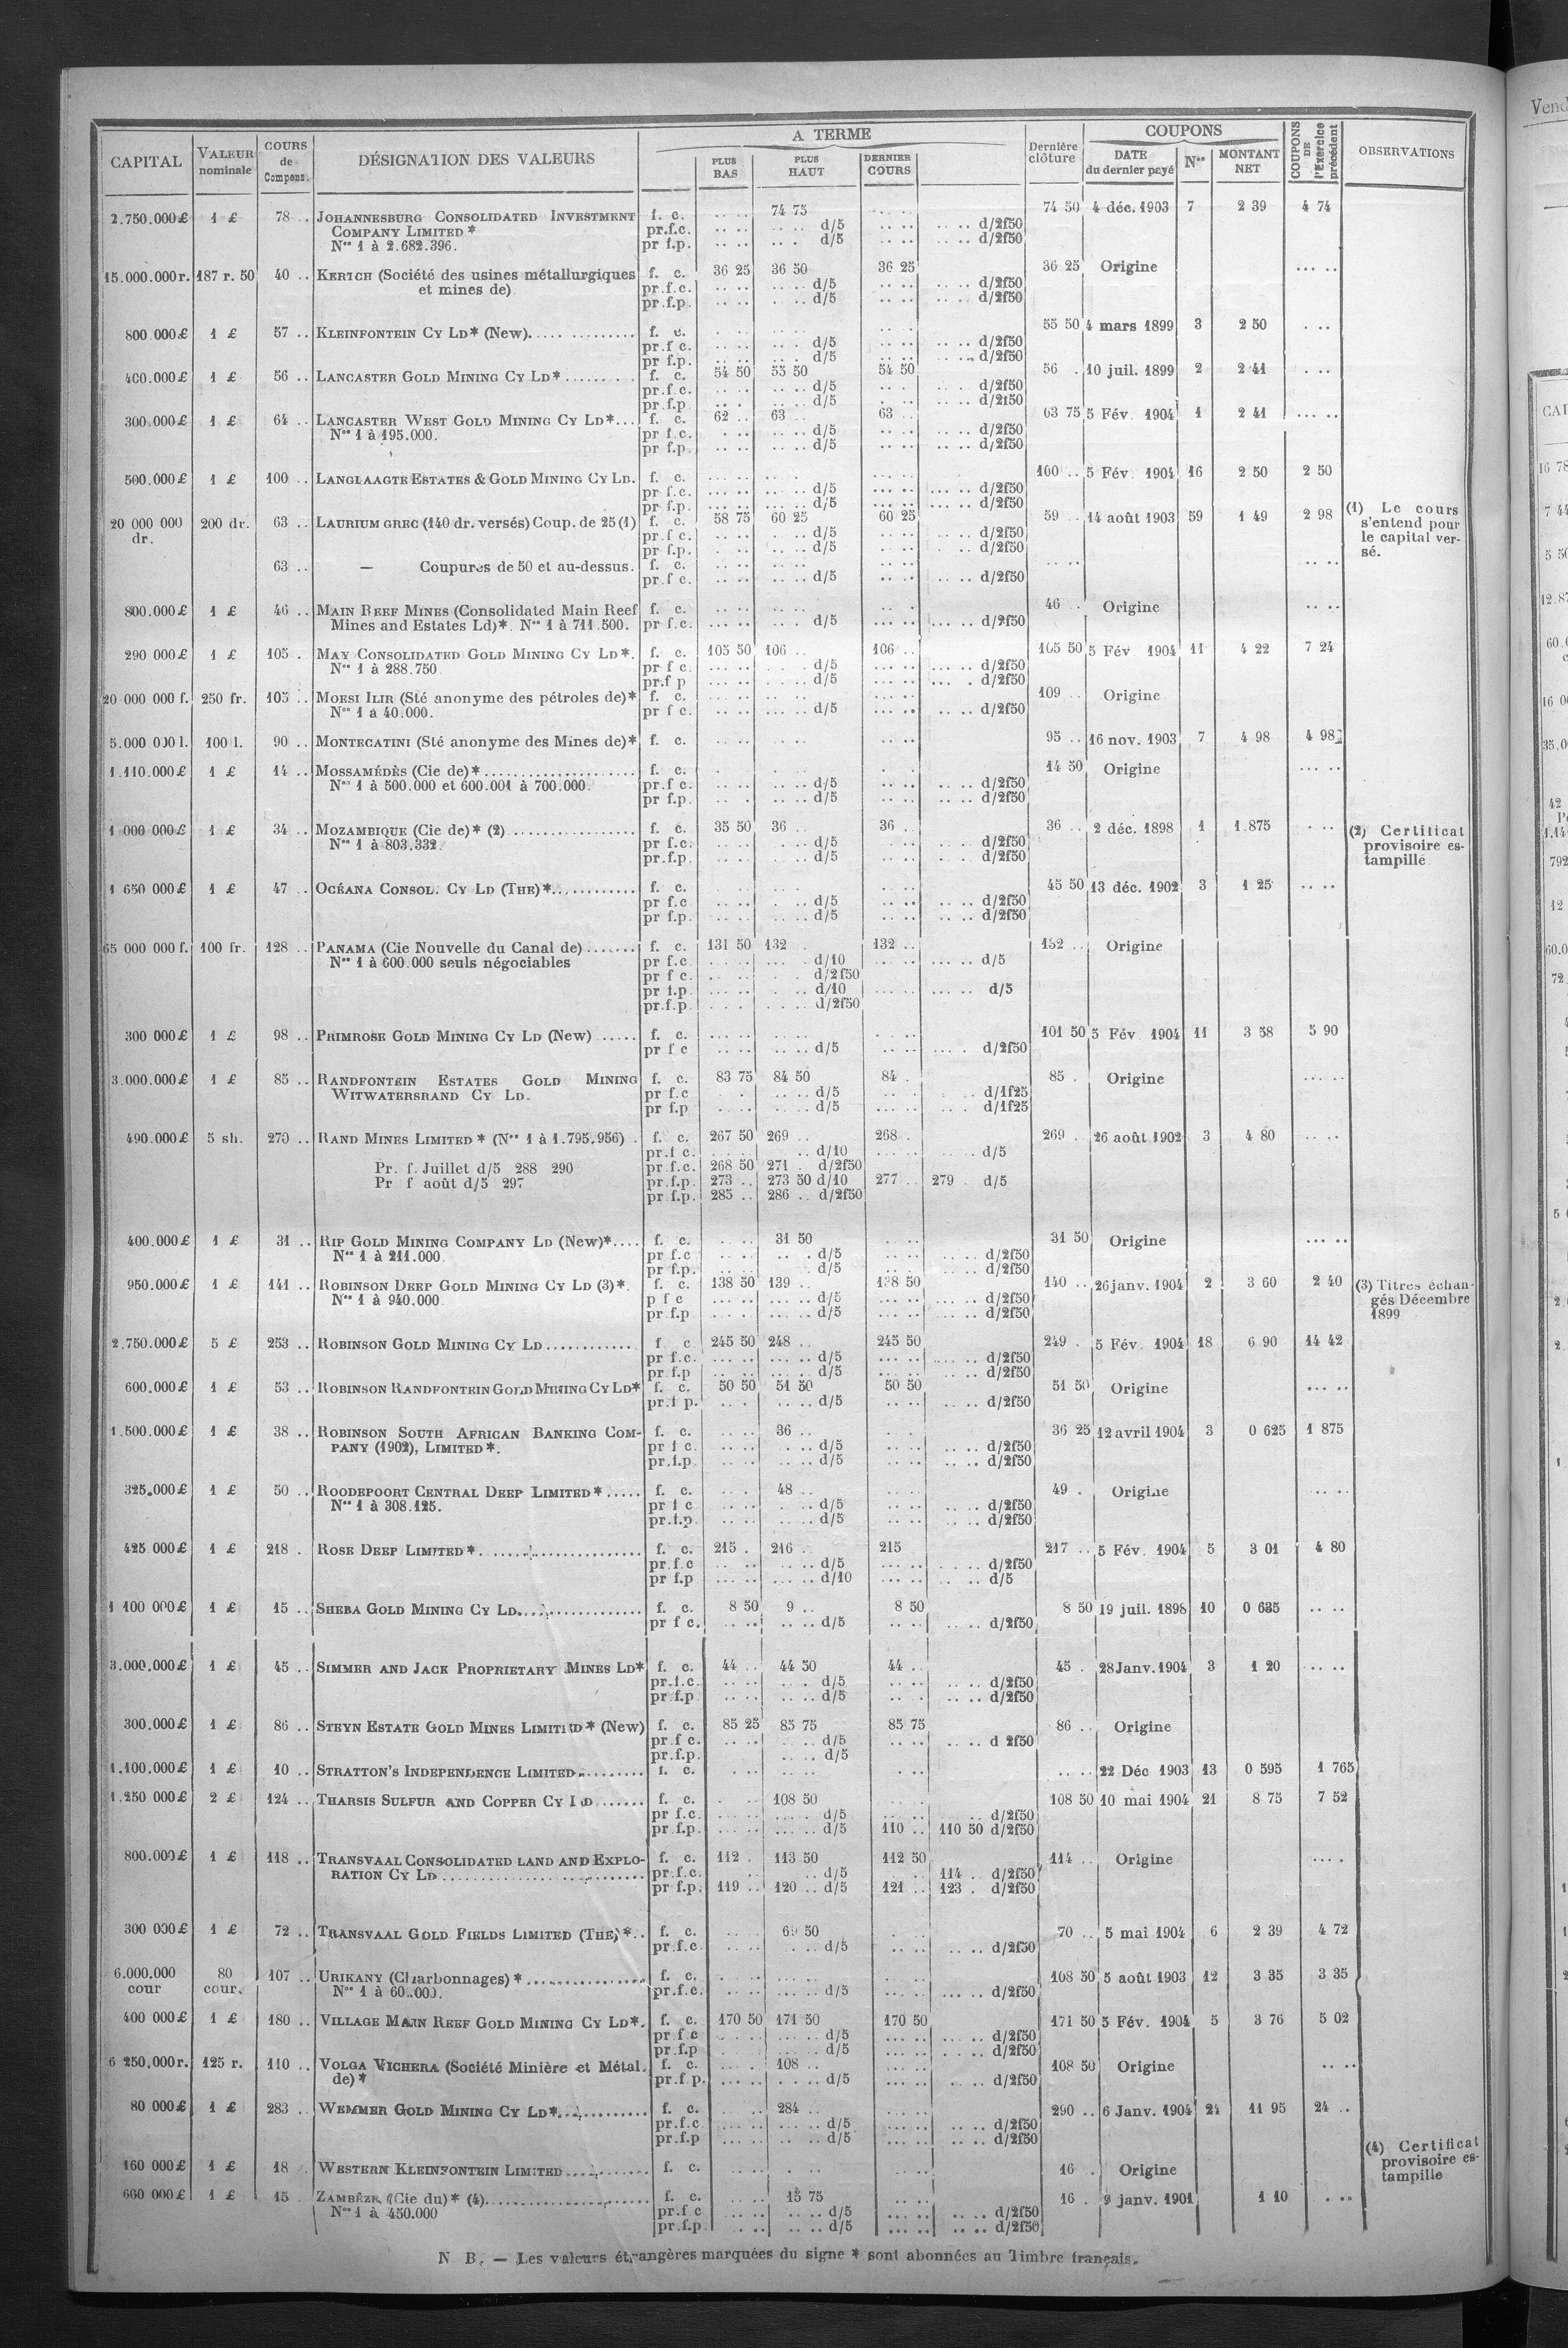 CAPITAL VALEUR nominale COURS de Compens. DÉSIGNATION DES VALEURS A TERME PLUS BAS PLUS HAUT DERNIER COURS Dernière clôture COUPONS DATE du dernier payé Nos MONTANT NET COUPONS DE l'Exercice précédent OBSERVATIONS
2.750.000£ 1 £ 78 .. JOHANNESBURG CONSOLIDATED INVESTMENT f. c. .. .. 74 75 .. .. 74 50 4 déc. 1903 7 2 39 4 74
COMPANY LIMITED * pr.f.c. .. .. .. .. d/5 .. .. .. .. d/2f50
Nos 1 à 2.682.396. pr f.p. .. .. .. . d/5 .. .. .. .. d/2f50
15.000.000r. 187 r. 50 40 .. KERTCH (Société des usines métallurgiques f. c. 36 25 36 50 36 25 36 25 Origine ... ..
et mines de) pr.f.c. .. .. .. .. d/5 .. .. .. .. d/2f50
pr.f.p. .. .. .. .. d/5 .. .. .. .. d/2f50
800.000£ 1 £ 57 .. KLEINFONTEIN CY LD* (New). f. c. 55 50 4 mars 1899 3 2 50 . ..
pr.f c. .. .. d/5 .. .. d/2f50
pr f.p. .. .. d/5 .. .. d/2f50
400.000£ 1 £ 56 .. LANCASTER GOLD MINING CY LD* f. c. 54 50 55 50 54 50 56 . 10 juil. 1899 2 2 41 . ..
pr.f.c. .. .. d/5 .. .. d/2f50
pr.f.p .. .. d/5 .. .. d/2f50
300.000£ 1 £ 64 .. LANCASTER WEST GOLD MINING CY LD*... f. c. 62 .. 63 63 .. 63 75 5 Fév. 1904 1 2 41 ... ..
Nos 1 à 195.000. pr f.c. .. .. d/5 .. .. d/2f50
pr f.p. .. .. d/5 .. .. d/2f50
500.000£ 1 £ 100 .. LANGLAAGTE ESTATES & GOLD MINING CY LD. f. c. 100 .. 5 Fév. 1904 16 2 50 2 50
pr f.c. .. .. d/5 .. .. d/2f50
pr f.p. .. .. d/5 .. .. d/2f50
20 000 000 200 dr. 63 .. LAURIUM GREC (140 dr. versés) Coup. de 25 (1) f. c. 58 75 60 25 60 25 59 .. 14 août 1903 59 1 49 2 98 (1) Le cours s'entend pour le capital versé.
dr. pr.f c. .. .. d/5 .. .. d/2f50
pr f.p. .. .. d/5 .. .. d/2f50
63 .. — Coupures de 50 et au-dessus. f. c. .. .. .. ..
pr.f c. .. .. d/5 .. .. d/2f50
800.000£ 1 £ 46 .. MAIN REEF MINES (Consolidated Main Reef f. c. 46 .. Origine .. ..
Mines and Estates Ld)*. Nos 1 à 711.500. pr f.c. .. .. d/5 .. .. d/2f50
290 000£ 1 £ 105 . MAY CONSOLIDATED GOLD MINING CY LD*. f. c. 105 50 106 .. 106 .. 105 50 5 Fév 1904 11 4 22 7 24
Nos 1 à 288.750 pr f c. .. .. d/5 .. .. d/2f50
pr.f p .. .. d/5 .. .. d/2f50
20 000 000 f. 250 fr. 105 .. MORSI ILIR (Sté anonyme des pétroles de)* f. c. 109 .. Origine
Nos 1 à 40.000. pr f c. .. .. d/5 .. .. d/2f50
5.000 000 l. 100 l. 90 .. MONTECATINI (Sté anonyme des Mines de)* f. c. 95 .. 16 nov. 1903 7 4 98 4 98
1.110.000£ 1 £ 14 .. MOSSAMÉDÈS (Cie de)* f. c. 14 50 Origine ... ..
Nos 1 à 500.000 et 600.001 à 700.000. pr.f c. .. .. d/5 .. .. d/2f50
pr f.p. .. .. d/5 .. .. d/2f50
1 000 000£ 1 £ 34 .. MOZAMBIQUE (Cie de)* (2) f. c. 35 50 36 .. 36 .. 36 .. 2 déc. 1898 1 1.875 . .. (2) Certificat provisoire estampillé
Nos 1 à 803.332. pr f.c. .. .. d/5 .. .. d/2f50
pr.f.p. .. .. d/5 .. .. d/2f50
1 650 000£ 1 £ 47 .. OCÉANA CONSOL. CY LD (THE)* f. c. 45 50 13 déc. 1902 3 1 25 .. ..
pr f.c .. .. d/5 .. .. d/2f50
pr f.p. .. .. d/5 .. .. d/2f50
65 000 000 f. 100 fr. 128 .. PANAMA (Cie Nouvelle du Canal de) f. c. 131 50 132 . 132 .. 132 .. Origine
Nos 1 à 600.000 seuls négociables pr f.c. .. .. d/10 .. .. d/5
pr f c. .. .. d/2f50
pr f.p. .. .. d/10 .. .. d/5
pr.f.p .. .. d/2f50
300 000£ 1 £ 98 .. PRIMROSE GOLD MINING CY LD (New) f. c. 101 50 5 Fév 1904 11 3 58 5 90
pr f c .. .. d/5 .. .. d/2f50
3.000.000£ 1 £ 85 .. RANDFONTEIN ESTATES GOLD MINING f. c. 83 75 84 50 84 . 85 . Origine ... ..
WITWATERSRAND CY LD. pr f.c .. .. d/5 .. .. d/1f25
pr f.p .. .. d/5 .. .. d/1f25
490.000£ 5 sh. 270 .. RAND MINES LIMITED * (Nos 1 à 1.795.956) . f. c. 267 50 269 .. 268 . 269 .. 26 août 1902 3 4 80 .. ..
pr.f c. .. .. d/10 .. .. d/5
Pr. f. Juillet d/5 288 290 pr.f.c. 268 50 271 . d/2f50
Pr f août d/5 297 pr.f.p. 273 .. 273 50 d/10 277 .. 279 . d/5
pr.f.p. 285 .. 286 .. d/2f50
400.000£ 1 £ 31 .. RIP GOLD MINING COMPANY LD (New)*.... f. c. 31 50 31 50 Origine ... ..
Nos 1 à 211.000 pr f.c .. .. d/5 .. .. d/2f50
pr f.p. .. .. d/5 .. .. d/2f50
950.000£ 1 £ 141 .. ROBINSON DEEP GOLD MINING CY LD (3)*. f. c. 138 50 139 .. 138 50 140 .. 26 janv. 1904 2 3 60 2 40 (3) Titres échangés Décembre 1899
Nos 1 à 940.000 p f c .. .. d/5 .. .. d/2f50
pr.f.p .. .. d/5 .. .. d/2f50
2.750.000£ 5 £ 253 .. ROBINSON GOLD MINING CY LD f c 245 50 248 .. 245 50 249 . 5 Fév. 1904 18 6 90 14 42
pr f.c. .. .. d/5 .. .. d/2f50
pr f.p .. .. d/5 .. .. d/2f50
600.000£ 1 £ 53 .. ROBINSON RANDFONTEIN GOLD MINING CY LD* f. c. 50 50 51 50 50 50 51 50 Origine ... ..
pr.f p. .. .. d/5 .. .. d/2f50
1.500.000£ 1 £ 38 .. ROBINSON SOUTH AFRICAN BANKING COM- f. c. 36 .. 36 25 12 avril 1904 3 0 625 1 875
PANY (1902), LIMITED*. pr f c. .. .. d/5 .. .. d/2f50
pr.f.p .. .. d/5 .. .. d/2f50
325.000£ 1 £ 50 .. ROODEPOORT CENTRAL DEEP LIMITED* f. c. 48 .. 49 . Origine .. ..
Nos 1 à 308.125. pr f c .. .. d/5 .. .. d/2f50
pr.f.p .. .. d/5 .. .. d/2f50
425 000£ 1 £ 218 . ROSE DEEP LIMITED* f. c. 215 . 216 . 215 217 .. 5 Fév. 1904 5 3 01 4 80
pr.f.c .. .. d/5 .. .. d/2f50
pr f.p .. .. d/10 .. .. d/5
1 100 000£ 1 £ 15 .. SHEBA GOLD MINING CY LD. f. c. 8 50 9 .. 8 50 8 50 19 juil. 1898 10 0 635 .. ..
pr f c. .. .. d/5 .. .. d/2f50
3.000.000£ 1 £ 45 .. SIMMER AND JACK PROPRIETARY MINES LD* f. c. 44 .. 44 50 44 .. 45 . 28 Janv. 1904 3 1 20 ... ..
pr.f.c .. .. d/5 .. .. d/2f50
pr f.p .. .. d/5 .. .. d/2f50
300.000£ 1 £ 86 .. STEYN ESTATE GOLD MINES LIMITED* (New) f. c. 85 25 85 75 85 75 86 .. Origine
pr.f c. .. .. d/5 .. .. d 2f50
pr.f.p. .. .. d/5
1.100.000£ 1 £ 10 .. STRATTON'S INDEPENDENCE LIMITED f. c. .. .. 22 Déc 1903 13 0 595 1 765
1.250 000£ 2 £ 124 .. THARSIS SULFUR AND COPPER CY LD f. c. 108 50 108 50 10 mai 1904 21 8 75 7 52
pr f.c. .. .. d/5 .. .. d/2f50
pr f.p. .. .. d/5 110 .. 110 50 d/2f50
800.000£ 1 £ 118 .. TRANSVAAL CONSOLIDATED LAND AND EXPLO- f. c. 112 . 113 50 112 50 114 .. Origine ... .
RATION CY LD pr.f.c. .. .. d/5 114 .. d/2f50
pr f.p. 119 .. 120 .. d/5 121 .. 123 . d/2f50
300 000£ 1 £ 72 .. TRANSVAAL GOLD FIELDS LIMITED (THE)*.. f. c. 69 50 70 .. 5 mai 1904 6 2 39 4 72
pr.f.c .. .. d/5 .. .. d/2f50
6.000.000 80 107 .. URIKANY (Charbonnages) * f. c. 108 50 5 août 1903 12 3 35 3 35
cour cour. Nos 1 à 60.000. pr.f.c. .. .. d/5 .. .. d/2f50
400 000£ 1 £ 180 .. VILLAGE MAIN REEF GOLD MINING CY LD*. f. c. 170 50 171 50 170 50 171 50 5 Fév. 1904 5 3 76 5 02
pr f c .. .. d/5 .. .. d/2f50
pr.f.p .. .. d/5 .. .. d/2f50
6 250.000r. 125 r. 110 .. VOLGA VICHERA (Société Minière et Métal. f. c. 108 .. 108 50 Origine .. ..
de)* pr.f p. .. .. d/5 .. .. d/2f50
80 000£ 1 £ 283 .. WEMMER GOLD MINING CY LD* f. c. 284 .. 290 .. 6 Janv. 1904 24 11 95 24 ..
pr.f.c .. .. d/5 .. .. d/2f50
pr.f.p .. .. d/5 .. .. d/2f50
160 000£ 1 £ 18 . WESTERN KLEINFONTEIN LIMITED f. c. 16 . Origine (4) Certificat provisoire estampille
600 000£ 1 £ 15 . ZAMBÈZE (Cie du)* (4) f. c. 15 75 16 . 9 janv. 1901 1 10 . ..
Nos 1 à 450.000 pr.f c .. .. d/5 .. .. d/2f50
pr.f.p. .. .. d/5 .. .. d/2f50
N B. — Les valeurs étrangères marquées du signe * sont abonnées au Timbre français.